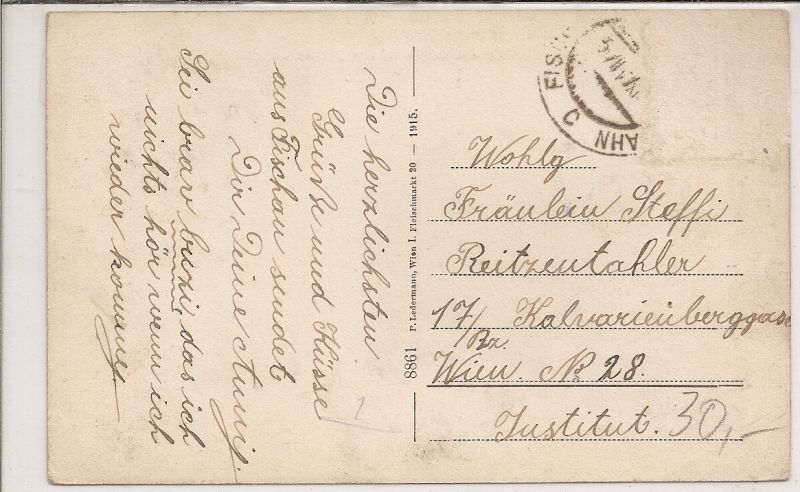 Die herzlichsten
Grüße und Küsse
aus Fischau sendet
Dir Deine
Sei brav buzi das ich
nichts hör wenn ich
wieder komme
8861 P. Ledermann, Wien I. Fleischmarkt 20 — 1915.
FISC
AHN
C
Wohlg
Fräulein Steffi
Reitzentahler
17/ Kalvarienberggasse
Bz.
Wien. No 28.
Institut.
30,-